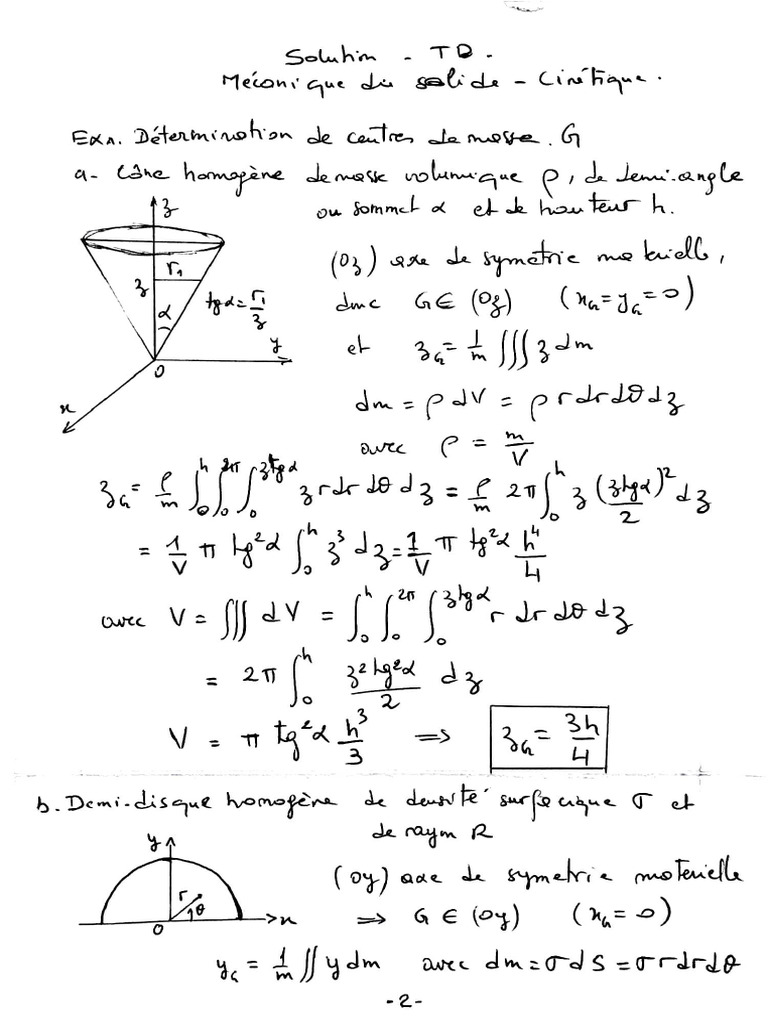 Solution - TD -
Mécanique du solide - Cinétique.
Ex1. Détermination de centres de masse. G
a- Cône homogène de masse volumique ρ, de demi-angle
au sommet α et de hauteur h.
z
r₁
z
α
tgα = r₁/z
y
O
x
(Oz) axe de symétrie matérielle,
donc G ∈ (Oz) (x_G = y_G = 0)
et z_G = 1/m ∭ z dm
dm = ρ dV = ρ r dr dθ dz
avec ρ = m/V
z_G = ρ/m ∫₀^h ∫₀^2π ∫₀^{z tgα} z r dr dθ dz = ρ/m 2π ∫₀^h z (z tgα)²/2 dz
= 1/V π tg²α ∫₀^h z³ dz = 1/V π tg²α h⁴/4
avec V = ∭ dV = ∫₀^h ∫₀^2π ∫₀^{z tgα} r dr dθ dz
= 2π ∫₀^h z² tg²α/2 dz
V = π tg²α h³/3 ⟹ z_G = 3h/4
b. Demi-disque homogène de densité surfacique σ et
de rayon R
y
r
θ
O
x
(Oy) axe de symetrie materielle
⟹ G ∈ (Oy) (x_G = 0)
y_G = 1/m ∬ y dm avec dm = σ dS = σ r dr dθ
- 2 -